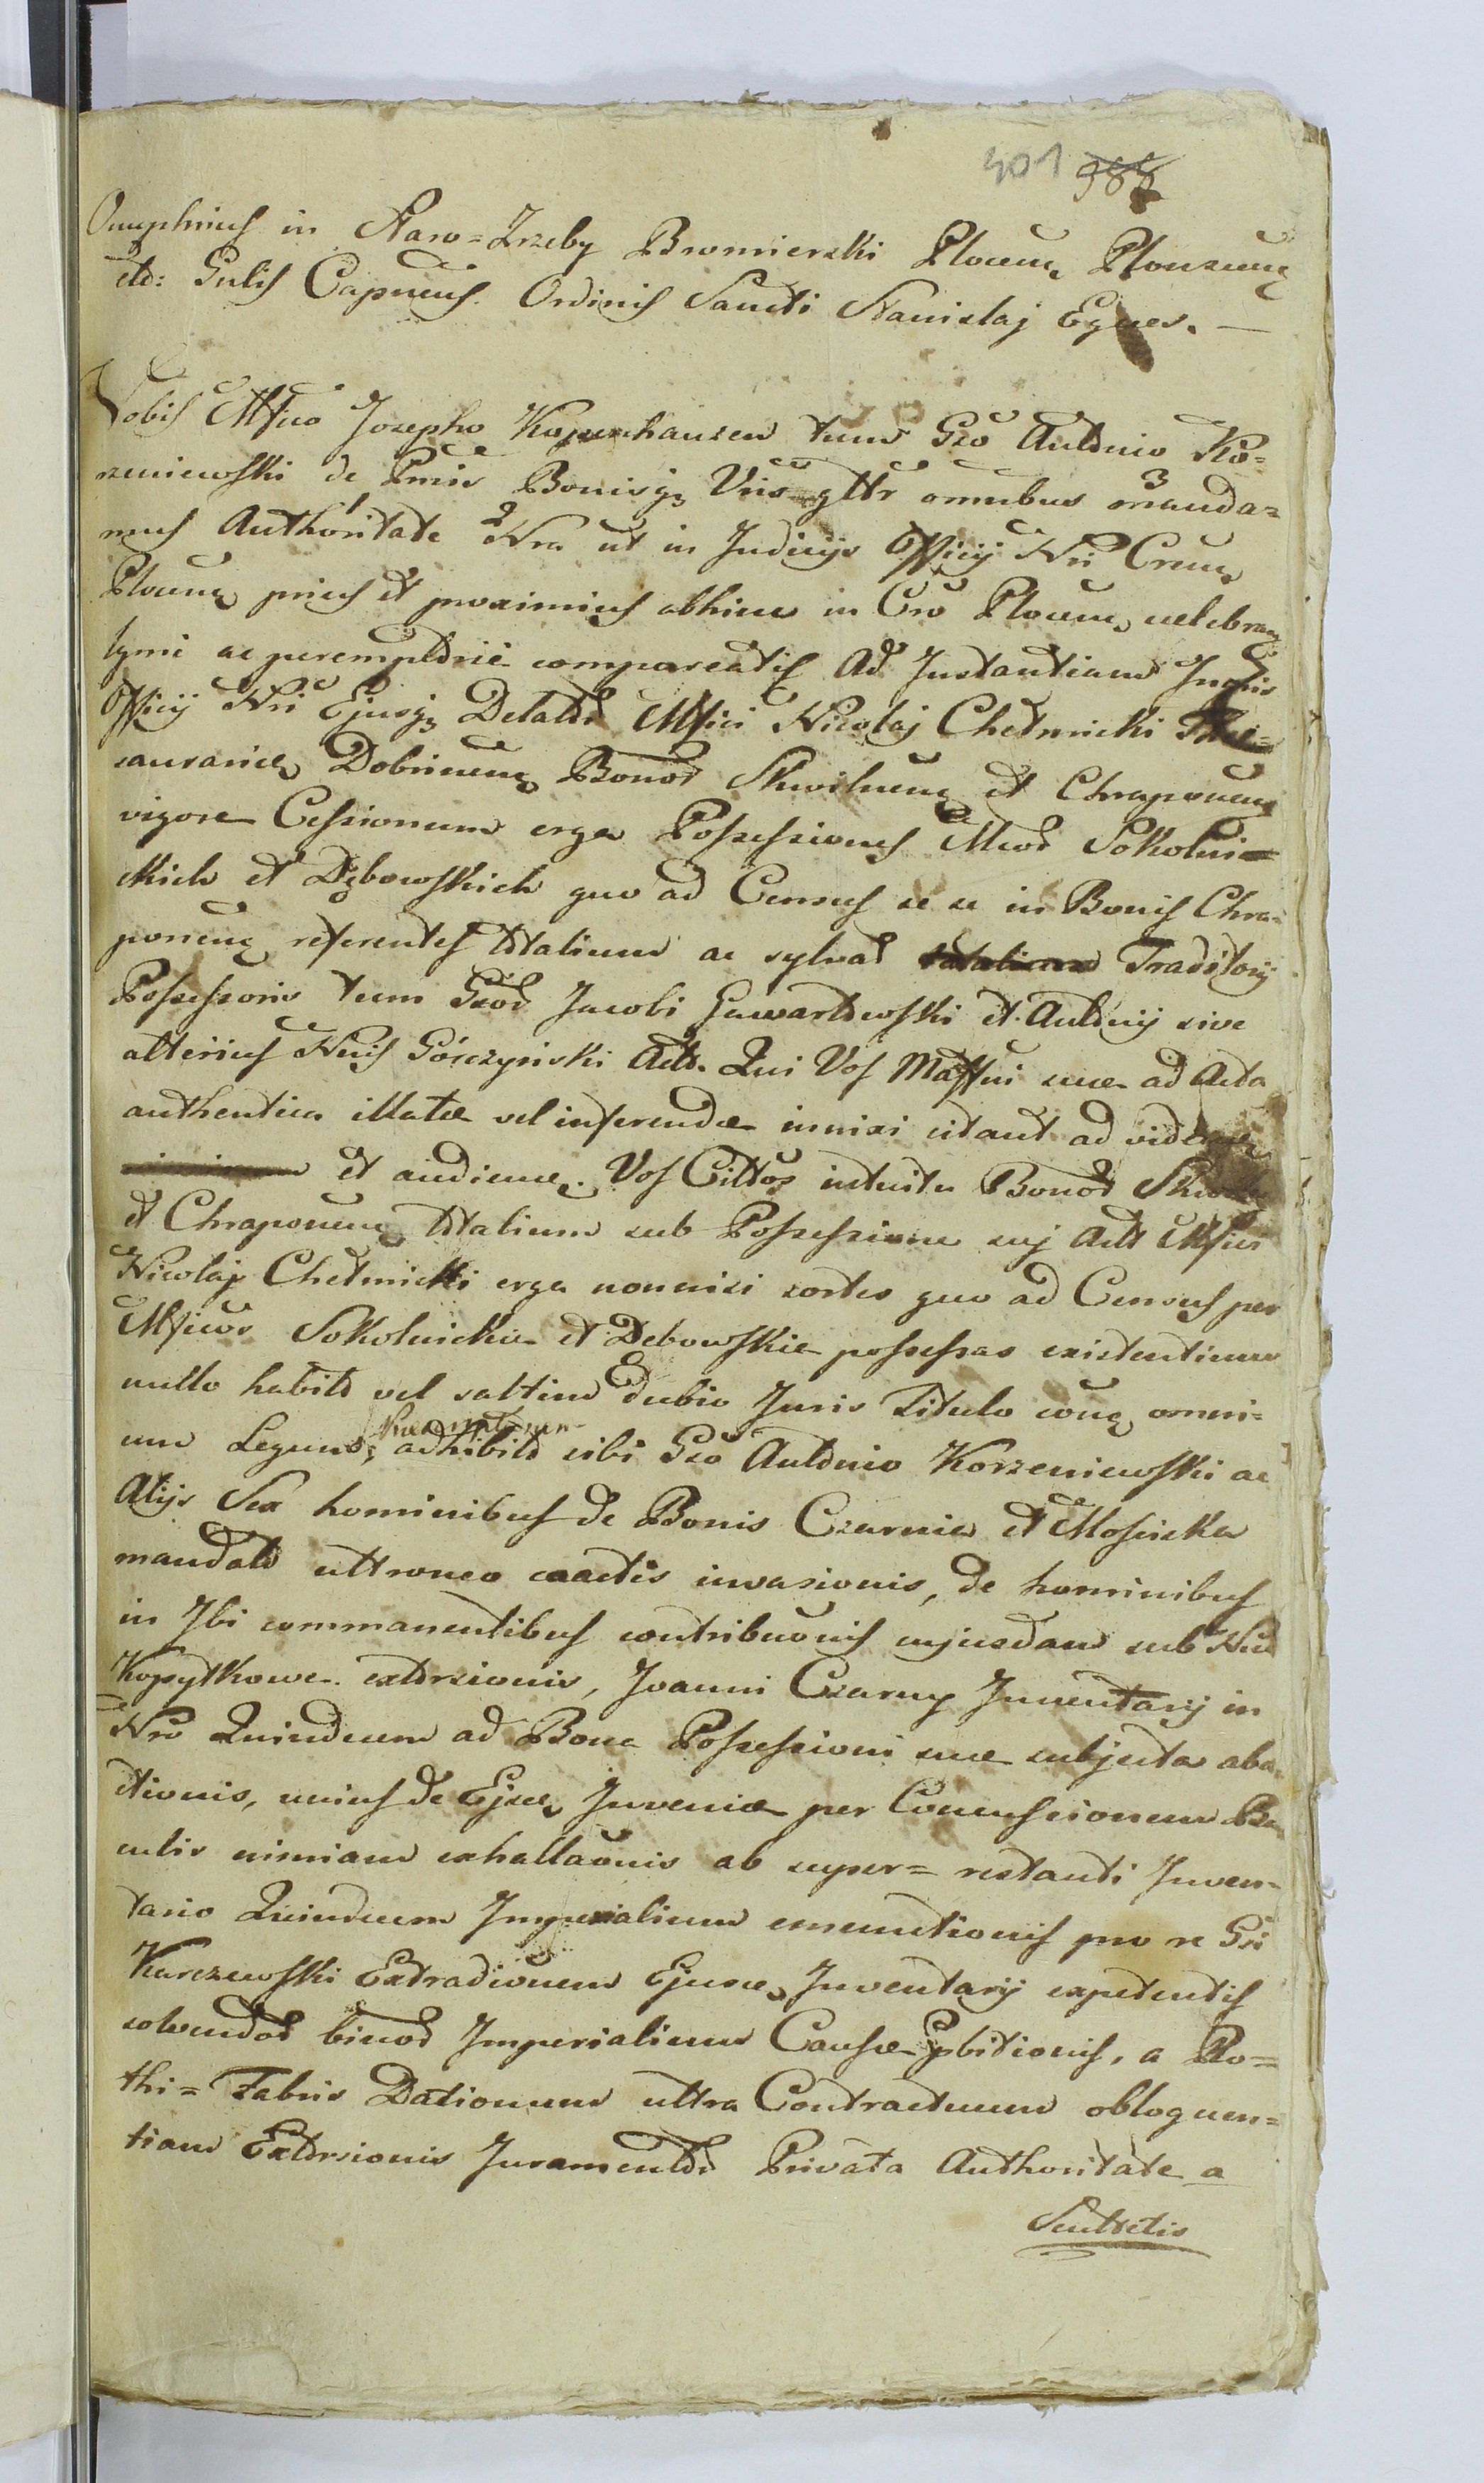 401 988
Onuphrius in Staro=Zrzeby Bromierski Plocen, Plonscen,
etc: Gnlis Capneus. Ordinis Sancti Stanislaj Eques. —
Vobis Mfico Josepho Kopenhausen tum Gso Antonio Ko=
rzeniewski de Pnis Bonisq, Vris gttr omnibus 3 manda=
mus 1 Authoritate 2 Nra ut in Judicijs Officij Nri Crens,
Plocens, prius et proximius abhinc in Cro Plocen, celebran,
lgmi ac peremptorie compareatis Ad Instantiam Instis
Officij Nri Ejusq, Delatoris Mfici Nicolaj Chełmicki The=
saurarii, Dobrinens, Bonor Skwilnens, et Chraponens,
vigore Cessionum erga Possessiones Mcor Sokolni=
ckich et Dębowskich quo ad Census se se in Bonis Chra=
ponens, referentes totalium ac sylvar Traditorij
Possessoris tum Gsor Jacobi Gawartowski et Antonij sive
alterius Nnis Górczynski Acto. Qui Vos Mattri suae ad Acta
authentica illatae vel inferendae innixi citant ad videndum,
et audiend, Vos Cittos intuitu Bonor
et Chraponens, totalium sub Possessione suj Acto Mfici
Nicolaj Chełmicki erga nonnisi sortes quo ad Census per
Mficos Sokolnickie et Dębowskie possessas existentium
nullo habito vel saltim dubio Juris Titulo cona, omni=
um Legum, adhibito sibi Gso Antonio Korzeniewski ac
Alijs Sex hominibus de Bonis Czarnia et Mosciska
mandato ultroneo coactis invasionis, de hominibus
in Ibi commanentibus contribuonis cujusdam sub Nne
Kopytkowe. extorsionis, Joanni Czarny Inventarij in
Nro Quindecim ad Bona Possessioni suae subjecta aba=
ctionis, unius de Ejsce, Juvencae per Concussionem
culis nimiam exhallaonis ab super= restanti Inven=
tario Quindecim Imperialium emunctionis pro re Gsi
Karczewski Extradionem Ejusce, Inventarij expetentis
solvendor binor Imperialium Causae Gbitionis, a Ro=
thi= Fabris Dationum ultra Contractum obloquen=
tiam Extorsionis Juramentor Privata Authoritate a
Scultetis